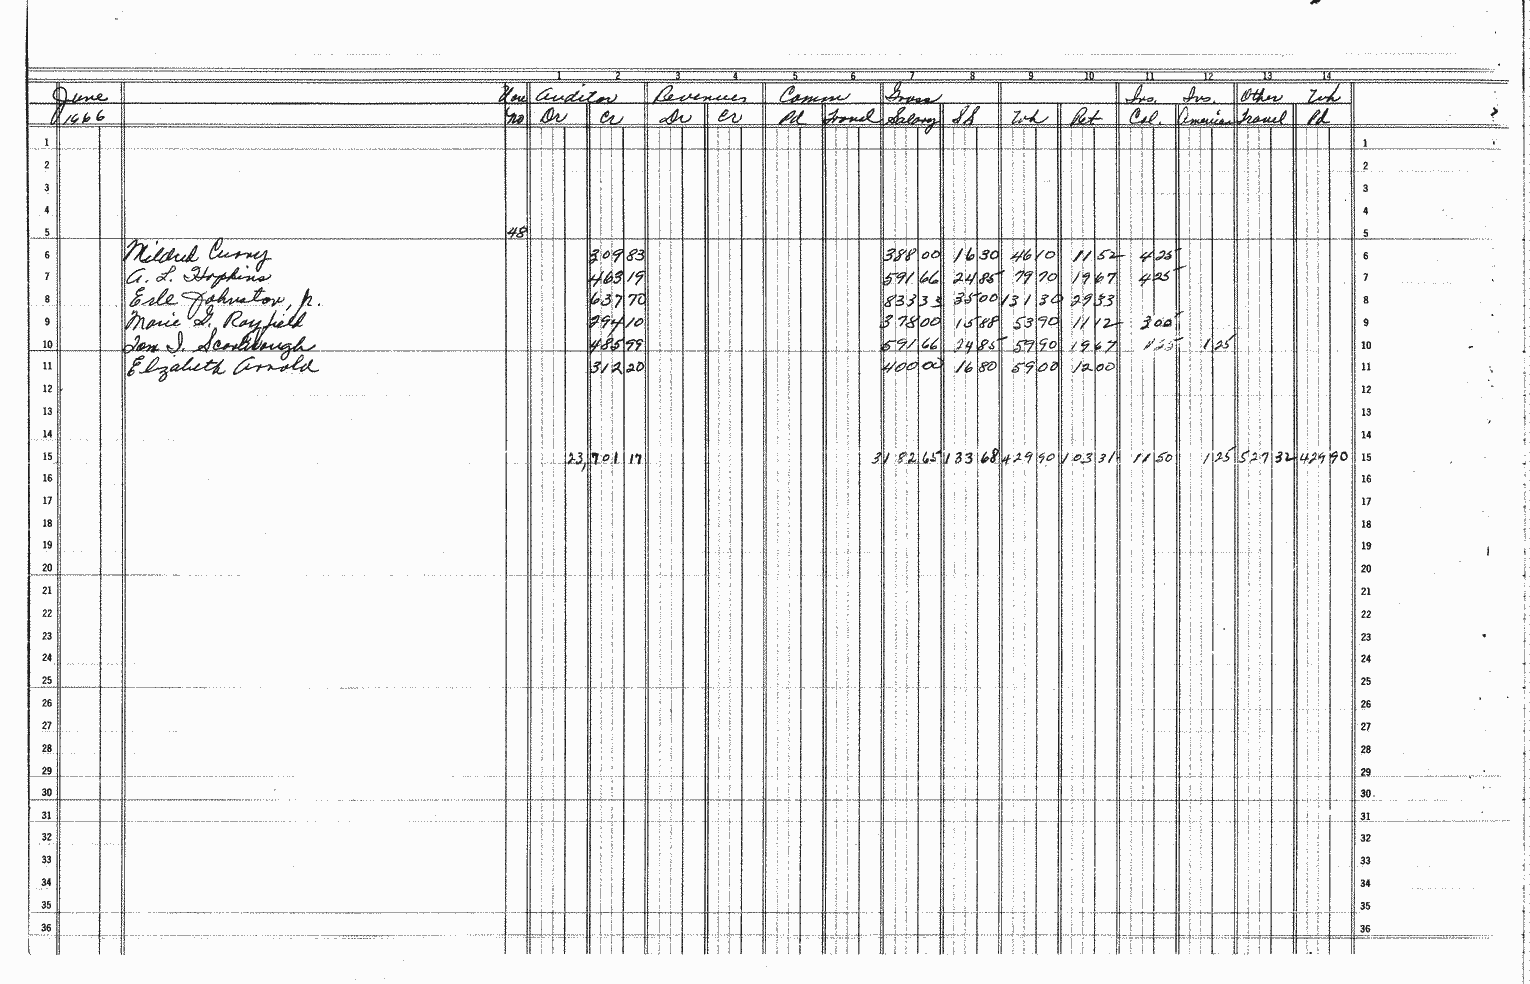 1 2 3 4 5 6 7 8 9 10 11 12 13 14
June Auditor Revenues Comm Gross Ins. Ins. Other Wh
1966 no Dr Cr Dr Cr Pd Travel Salary SS Wh Ret Col. American Travel Pd
1 1
2 2
3 3
4 4
5 48 5
6 Mildred Curry 309 83 388 00 16 30 46 10 11 52 4 25 6
7 A. L. Hopkins 463 19 591 66 24 85 79 70 19 67 4 25 7
8 Erle Johnston, Jr. 637 70 833 33 35 00 131 30 29 33 8
9 Marie G. Rayfield 294 10 378 00 15 88 53 90 11 12 3 00 9
10 Tom I. Scarbrough 485 99 591 66 24 85 59 90 19 67 1 25 10
11 Elizabeth Arnold 312 20 400 00 16 80 59 00 12 00 11
12 12
13 13
14 14
15 23,701 17 3182 65 133 68 429 90 103 31 11 50 1 25 527 32 429 90 15
16 16
17 17
18 18
19 19
20 20
21 21
22 22
23 23
24 24
25 25
26 26
27 27
28 28
29 29
30 30
31 31
32 32
33 33
34 34
35 35
36 36